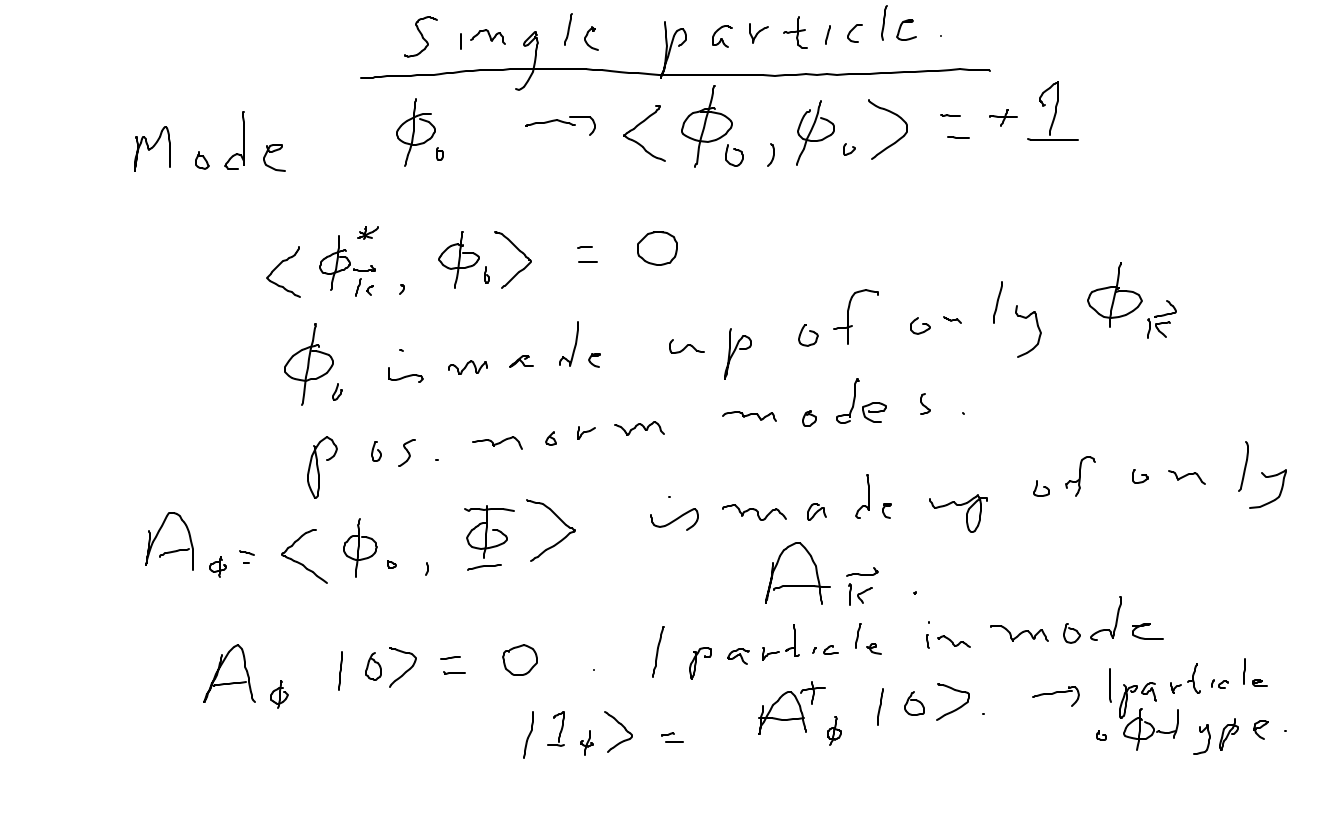 Single particle.
Mode ϕ₀ → <ϕ₀, ϕ₀> = +1
<ϕ*_k⃗, ϕ₀> = 0
ϕ₀ is made up of only ϕ_k⃗
pos. norm modes.
A_ϕ = <ϕ₀, Φ> is made up of only
A_k⃗.
A_ϕ |0> = 0. 1 particle in mode
|1_ϕ> = A†_ϕ |0>. → 1 particle
of ϕ type.